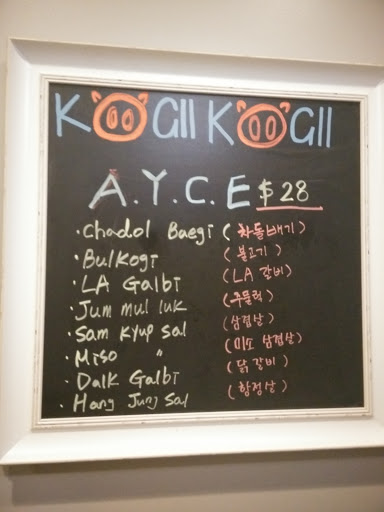 KOGII KOGII
A.Y.C.E $28
· Chadol Baegi (차돌배기)
· Bulkogi (불고기)
· LA Galbi (LA 갈비)
· Jum mul luk (주물럭)
· Sam Kyup Sal (삼겹살)
· Miso " (미소 삼겹살)
· Dalk Galbi (닭갈비)
· Hang Jung Sal (항정살)